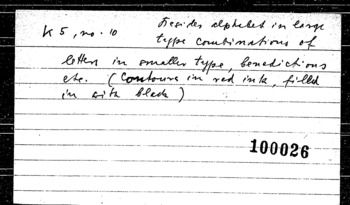 K 5, no. 10 Besides alphabet in large
type combinations of
letters in smaller type, benedictions
etc. (Contours in red ink, filled
in with black)
100026